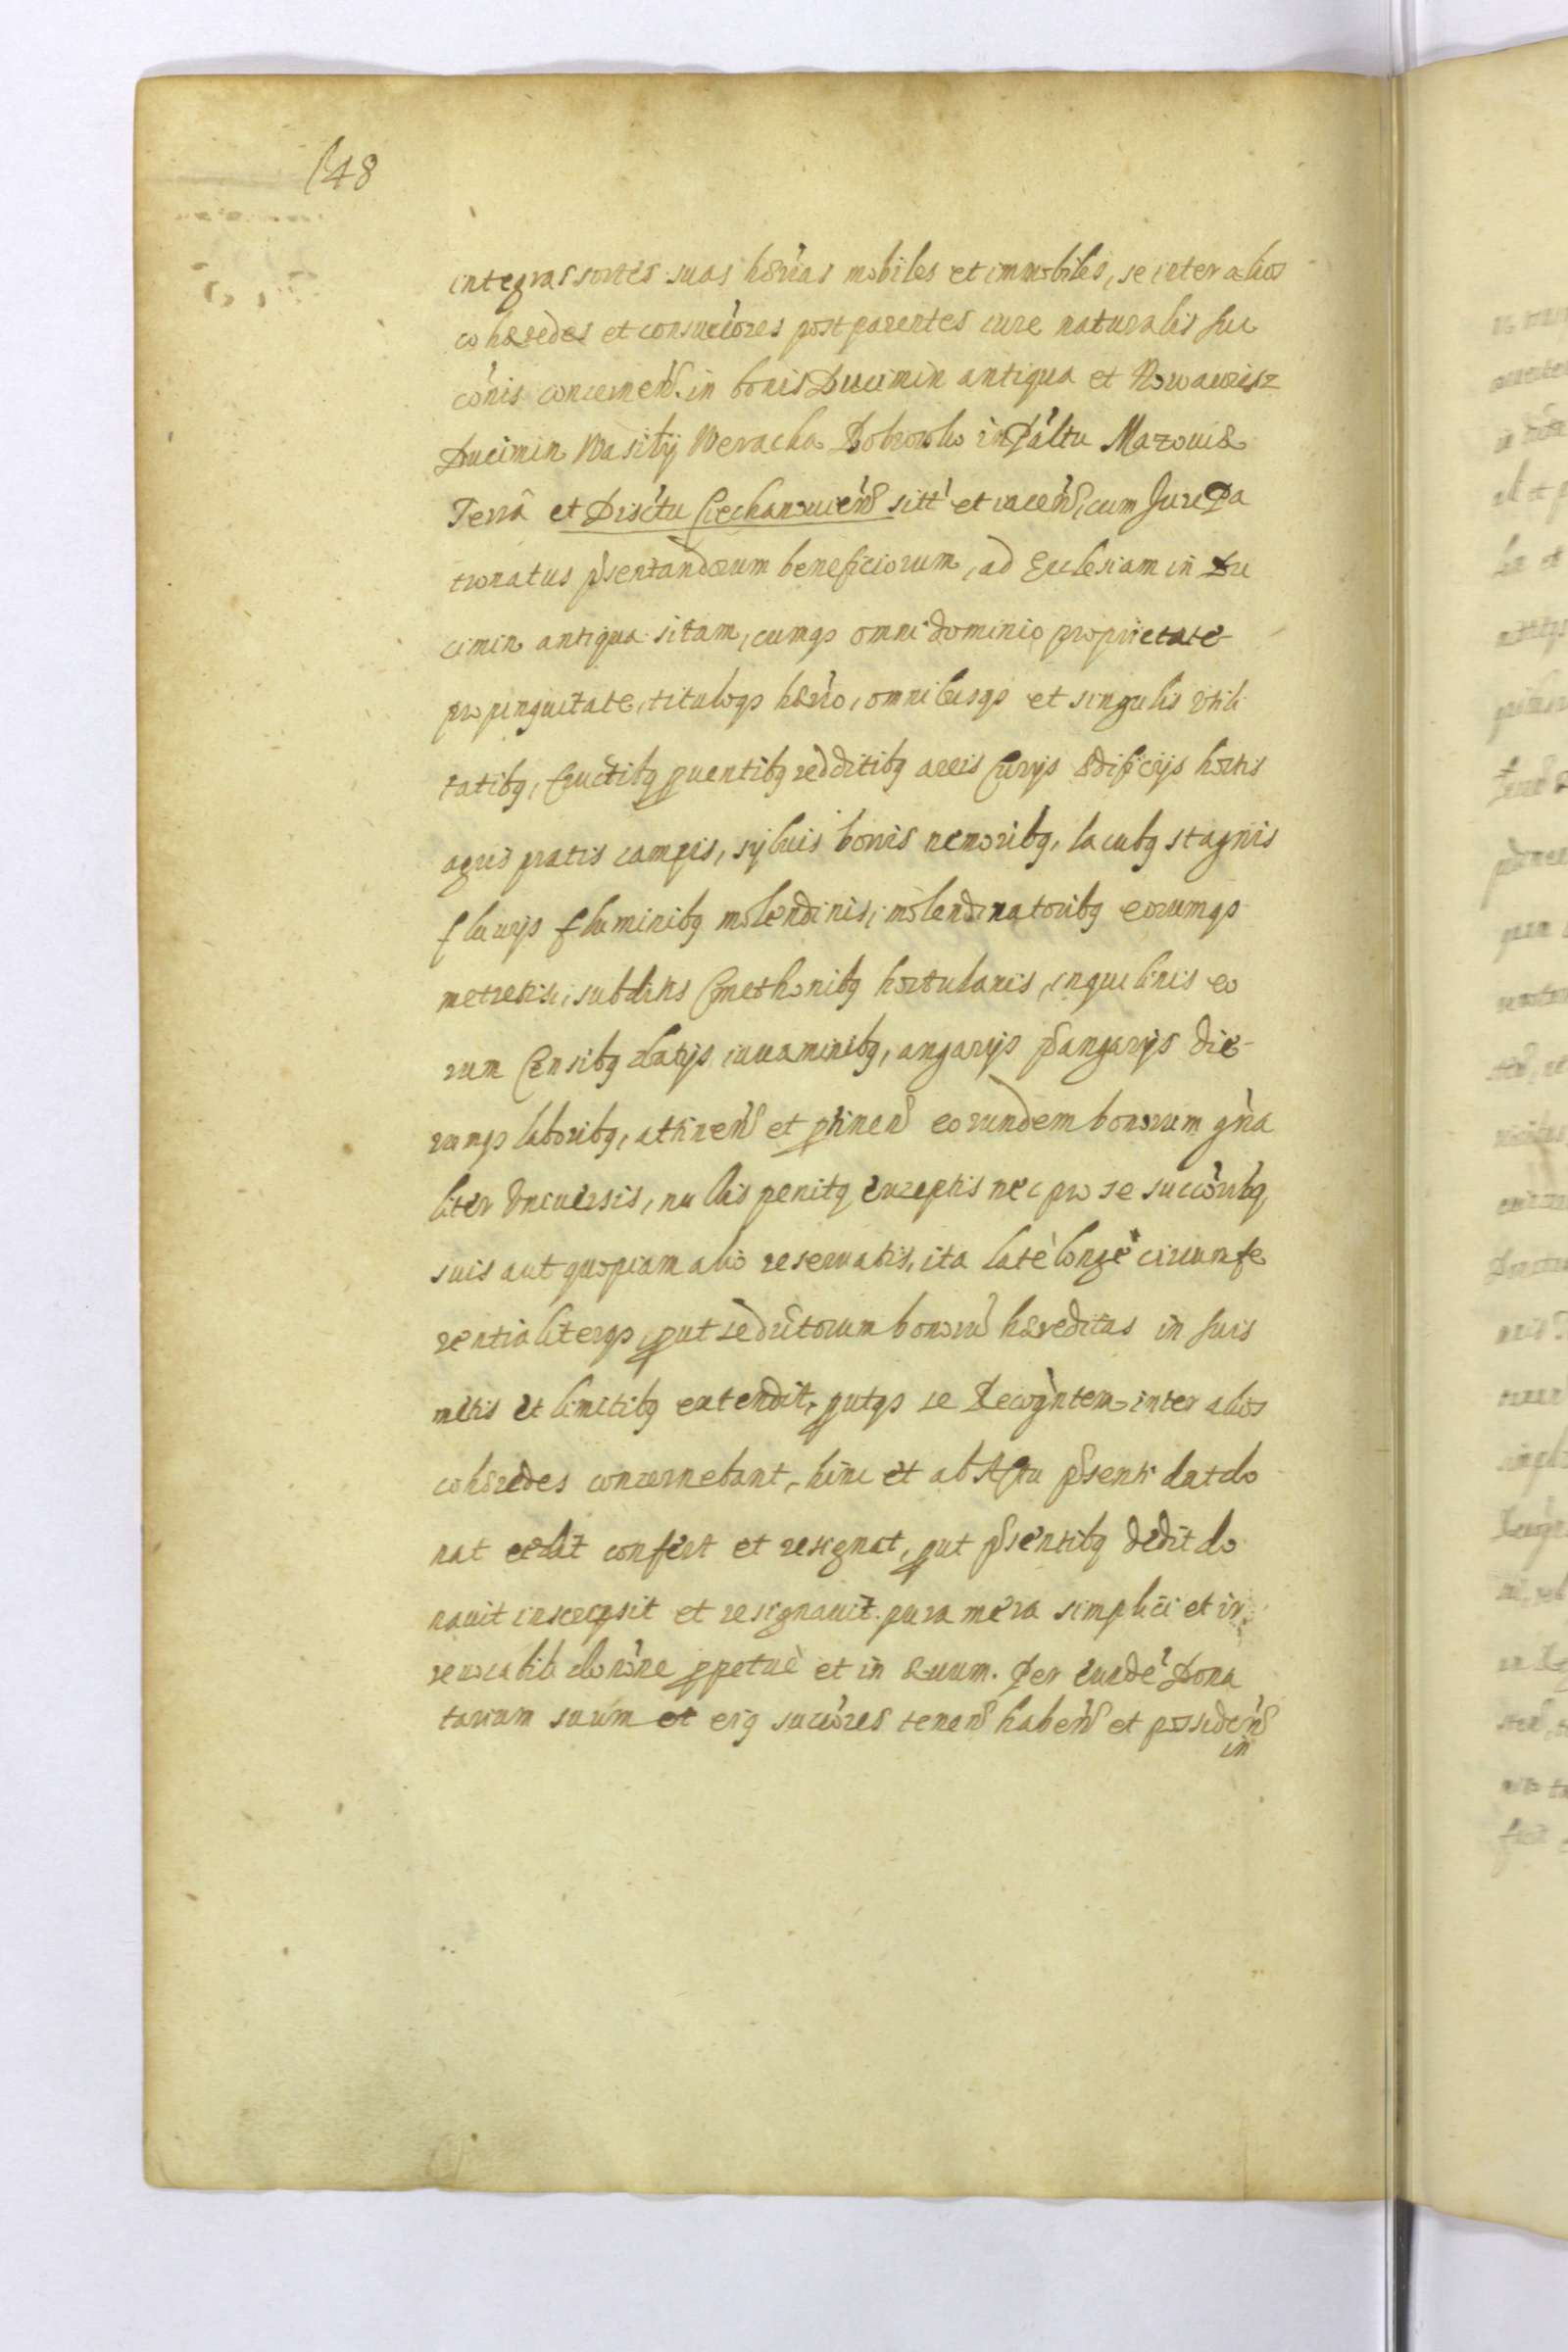 148
integras sortes suas hærias mobiles et immobiles, se inter alios
cohæredes et consuccores post parentes iure naturalis suc
cõnis concernen. in bonis Ducimin antiqua et Nowawiesz
Ducimin Wasiły Weracka Dobrowko in Pałtu Mazouiæ
Terrâ et Disctu Ciechanouien sitt et iacen, cum Jure Pa
tronatus pñsentandorum beneficiorum, ad Ecclesiam in Du
cimin antiqua sitam, cumqs omni dominio proprietate
propinquitate, tituloqs hærio, omnibusqs et singulis vtili
tatibq, fructibq puentibq redditibq areis Curijs ædificijs hortis
agris pratis campis, syluis borris nemoribq, lacubq stagnis
fluuijs fluminibq molendinis, molendinatoribq eorumqs
metretis, subditis Cmethonibq hortulanis, inquilinis eo
rum Censibq datijs iuuaminibq, angarijs pangarijs die
rumqs laboribq, attinen et ptinen eorundem bonorum gña
liter Vniuersis, nullis penitq exceptis nec pro se succoribq
suis aut quopiam alio reseruatis, ita latè longè circumfe
rentialiterqs, put se dictorum bonorũ hæreditas in suis
metis et limitibq extendit, putqs se Recogntem inter alios
cohæredes concernebant, hinc et ab Actu pñsenti dat do
nat cedit confert et resignat, put pñsentibq dedit do
nauit inscripsit et resignauit pura mera simplici et ir
reuocabili donõne ppetuè et in æuum. Per eunde Dona
tarium suum et eiq succores tenen haben et possiden
in